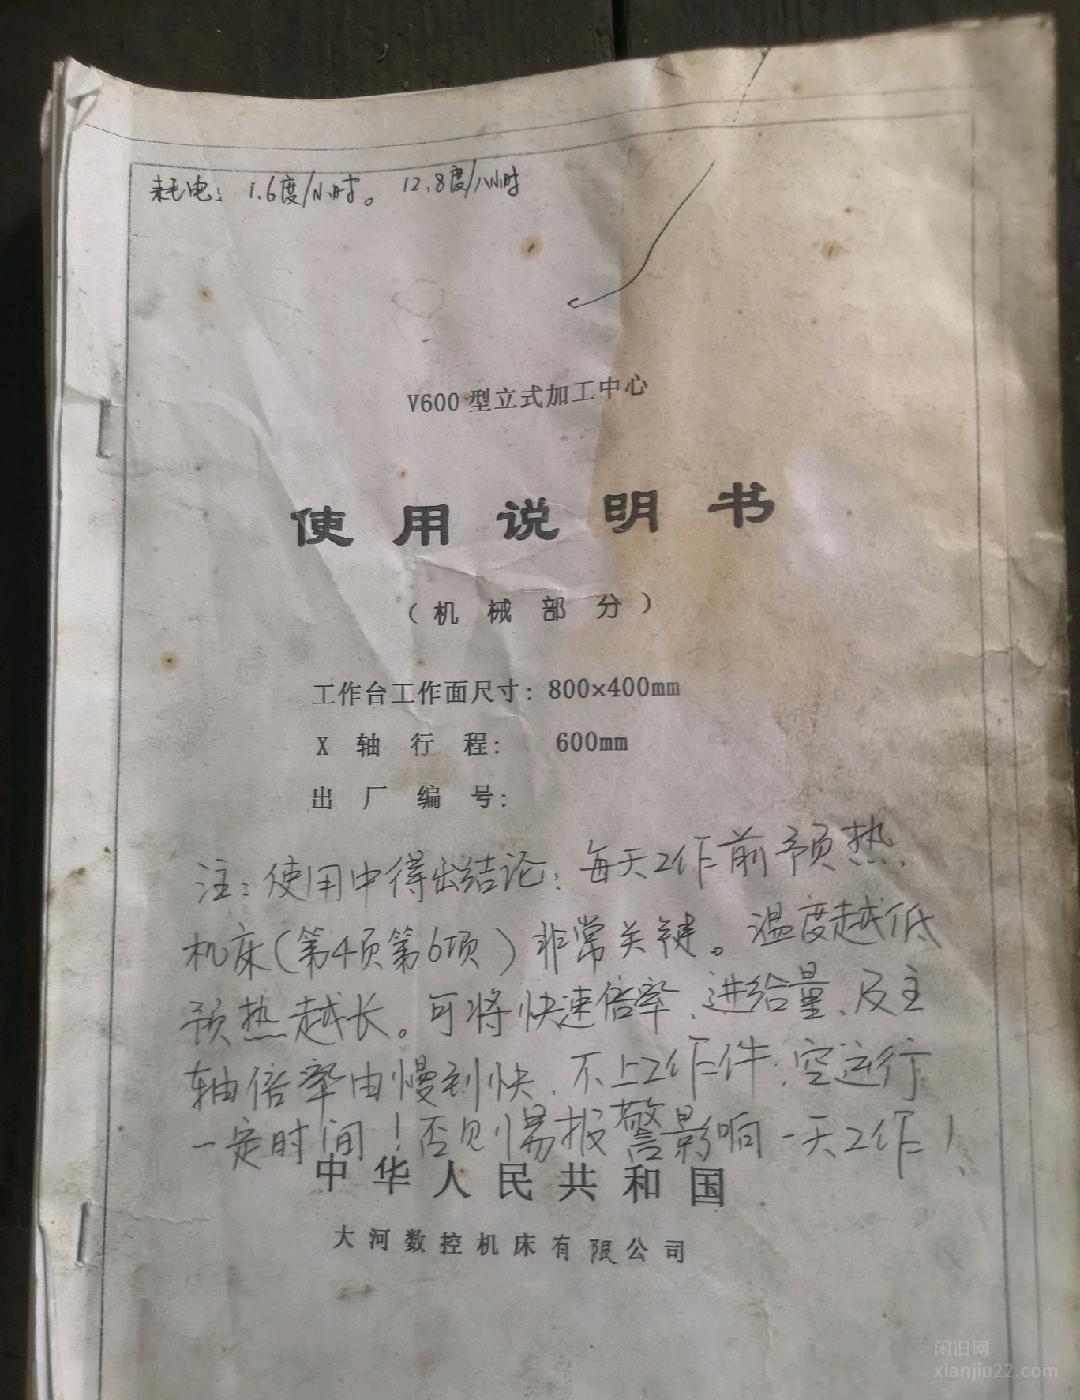 耗电：1.6度/小时。 12.8度/八小时
V600型立式加工中心
使用说明书
（机械部分）
工作台工作面尺寸：800×400mm
X轴行程： 600mm
出厂编号：
注：使用中得出结论：每天工作前预热，
机床（第4页第6项）非常关键。温度越低
预热越长。可将快速倍率、进给量、及主
轴倍率由慢到快、不上工作件，空运行
一定时间！否则易报警影响一天工作！
中华人民共和国
大河数控机床有限公司
闲旧网
xianjiu22.com